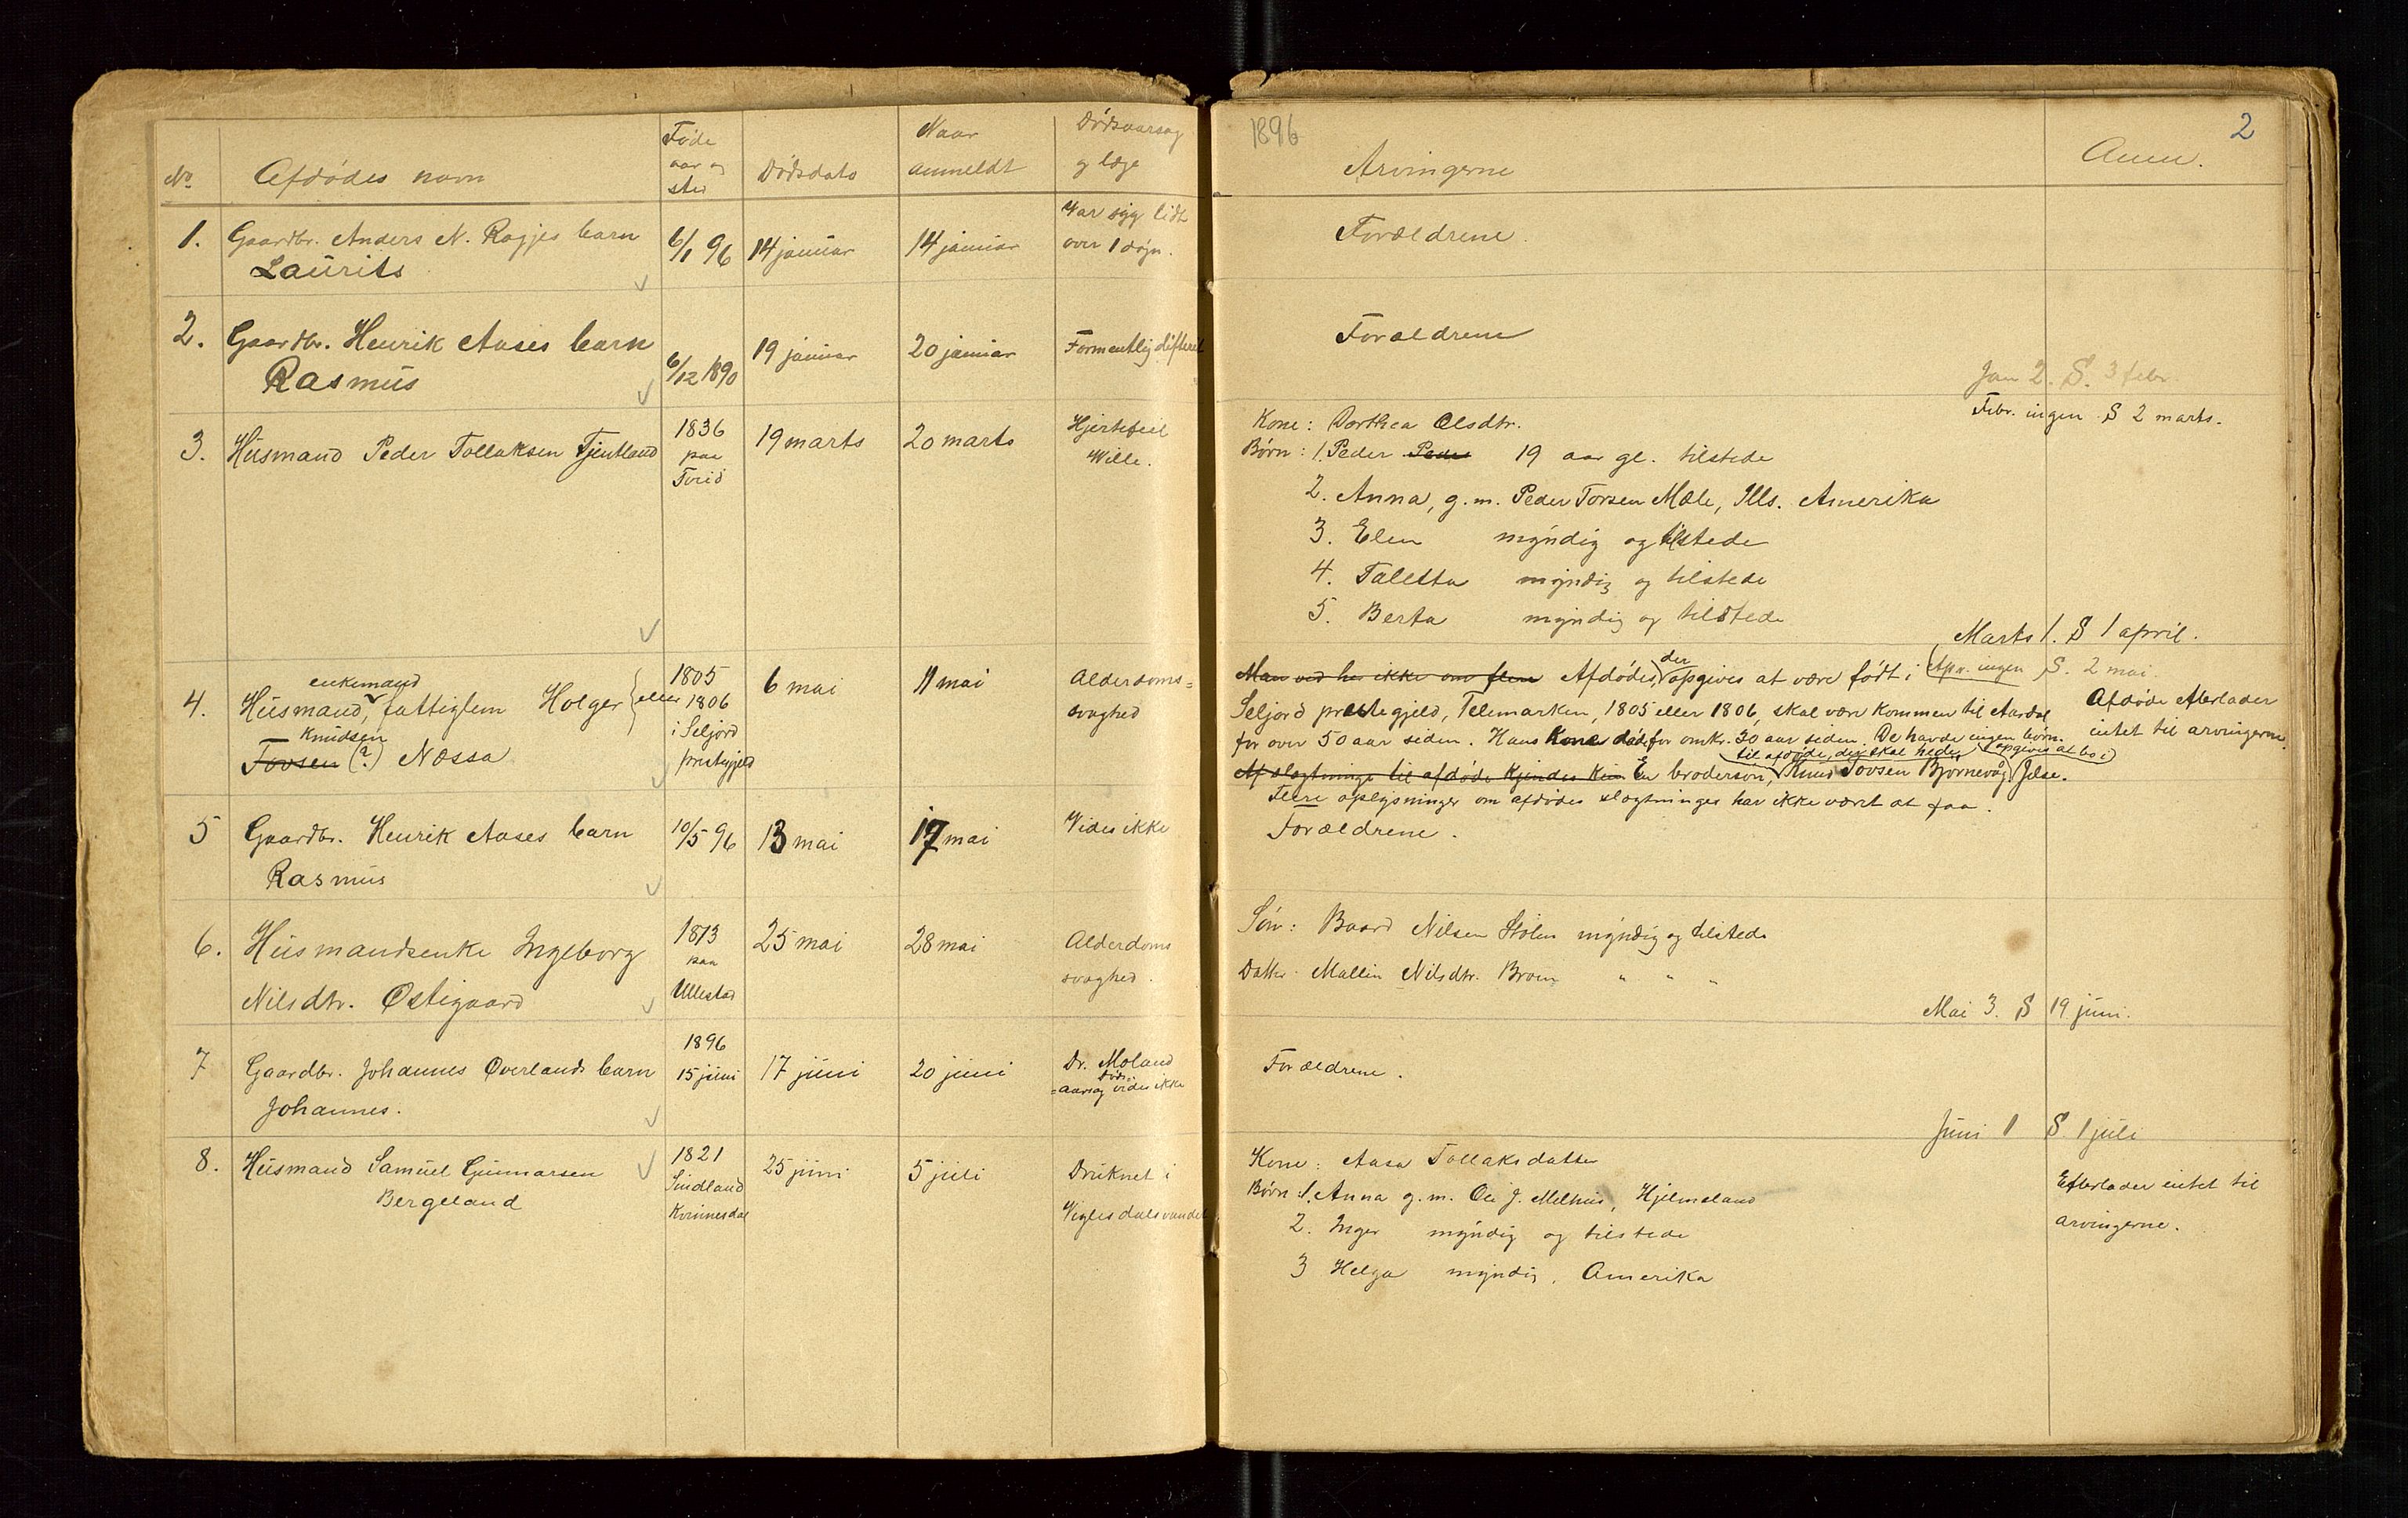 1896
2
No. Afdødes navn Føde aar og sted Dødsdato Naar anmeldt Dødsaarsag og læge Arvingerne Anm.
1. Gaardbr. Anders N. Rogjes barn
Laurits
6/1 96 14 januar 14 januar
Var syg lidt
over 1 døgn.
Forældrene.
2. Gaardbr. Henrik Auses barn
Rasmus
6/12 1890 19 januar 20 januar Formentlig difterit
Forældrene
Jan 2. S. 3 febr.
Febr. ingen S 2 marts.
3. Husmand Peder Tollaksen Tjentland
1836
paa
Tveid
19 marts 20 marts
Hjertefeil
Wille.
Kone: Dorthea Olsdtr.
Børn: 1. Peder Peder 19 aar gl. tilstede
2. Anna, g.m. Peder Torsen Mæle, Ills. Amerika
3. Elen myndig og tilstede
4. Taletta myndig og tilstede
5. Berta myndig og tilstede
Marts 1. S 1 april.
Apr. ingen S. 2 mai.
4. Husmand, enkemand, fattiglem Holger
Knudsen
Tovsen (?) Næssa
1805
eller 1806
i Seljord
prestegjeld
6 mai 11 mai
Alderdoms=
svaghed
Man ved her ikke om flere Afdødes, der opgives at være født i
Seljord prestegjeld, Telemarken, 1805 eller 1806, skal være kommen til Aardal
for over 50 aar siden. Hans Kone døde for omkr. 30 aar siden. De havde ingen børn.
til afdøde, der skal hede opgives at bo i
Af slægtninge til afdøde kjendes kun En brodersøn, Knud Tovsen Bjørnevåg, Jelse.
Flere oplysninger om afdødes slægtninger har ikke været at faa.
Afdøde efterlader
intet til arvingerne.
5 Gaardbr. Henrik Auses barn
Rasmus
10/5 96 13 mai 17 mai Vides ikke
Forældrene.
6. Husmandsenke Ingeborg
Nilsdtr. Østigaard
1813
paa
Ullestad
25 mai 28 mai
Alderdoms
svaghed.
Søn: Baard Nilsen Stølen myndig og tilstede
Datter: Mallin Nilsdtr. " " "
Mai 3. S 19 juni.
7 Gaardbr. Johannes Øverlands barn
Johannes.
1896
15 juni
17 juni 20 juni
Dr. Moland
Døds=
=aarsag vides ikke
Forældrene.
Juni 1 S. 1 juli
8. Husmand Samuel Gunnarsen
Bergeland
1821
Sindland
Kvinnesdal
25 juni 5 juli
Druknet i
Viglesdalsvandet
Kone: Aasa Tollaksdatter
Børn: 1. Anna g.m. Ole J. Melhus, Hjelmeland
2. Inger myndig og tilstede
3 Helga myndig, Amerika
Efterlader intet til
arvingerne.